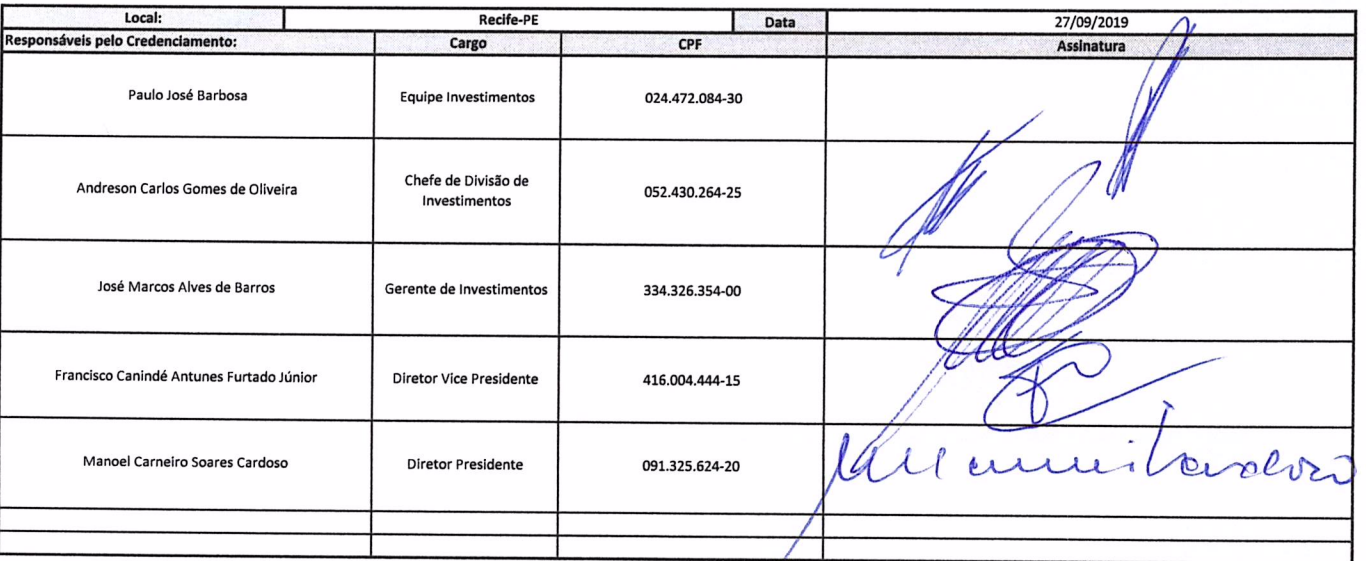 Local: Recife-PE Data 27/09/2019
Responsáveis pelo Credenciamento: Cargo CPF Assinatura
Paulo José Barbosa Equipe Investimentos 024.472.084-30
Andreson Carlos Gomes de Oliveira Chefe de Divisão de Investimentos 052.430.264-25
José Marcos Alves de Barros Gerente de Investimentos 334.326.354-00
Francisco Canindé Antunes Furtado Júnior Diretor Vice Presidente 416.004.444-15
Manoel Carneiro Soares Cardoso Diretor Presidente 091.325.624-20